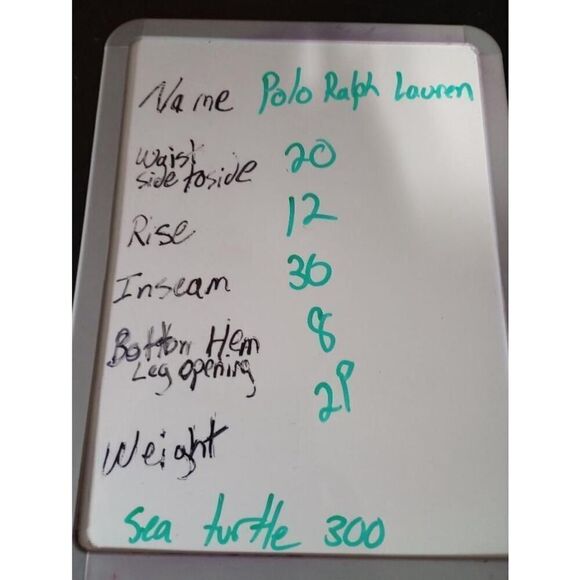 Name Polo Ralph Lauren
Waist 20
side to side
Rise 12
Inseam 36
Bottom Hem 8
Leg opening
Weight
Sea turtle 300